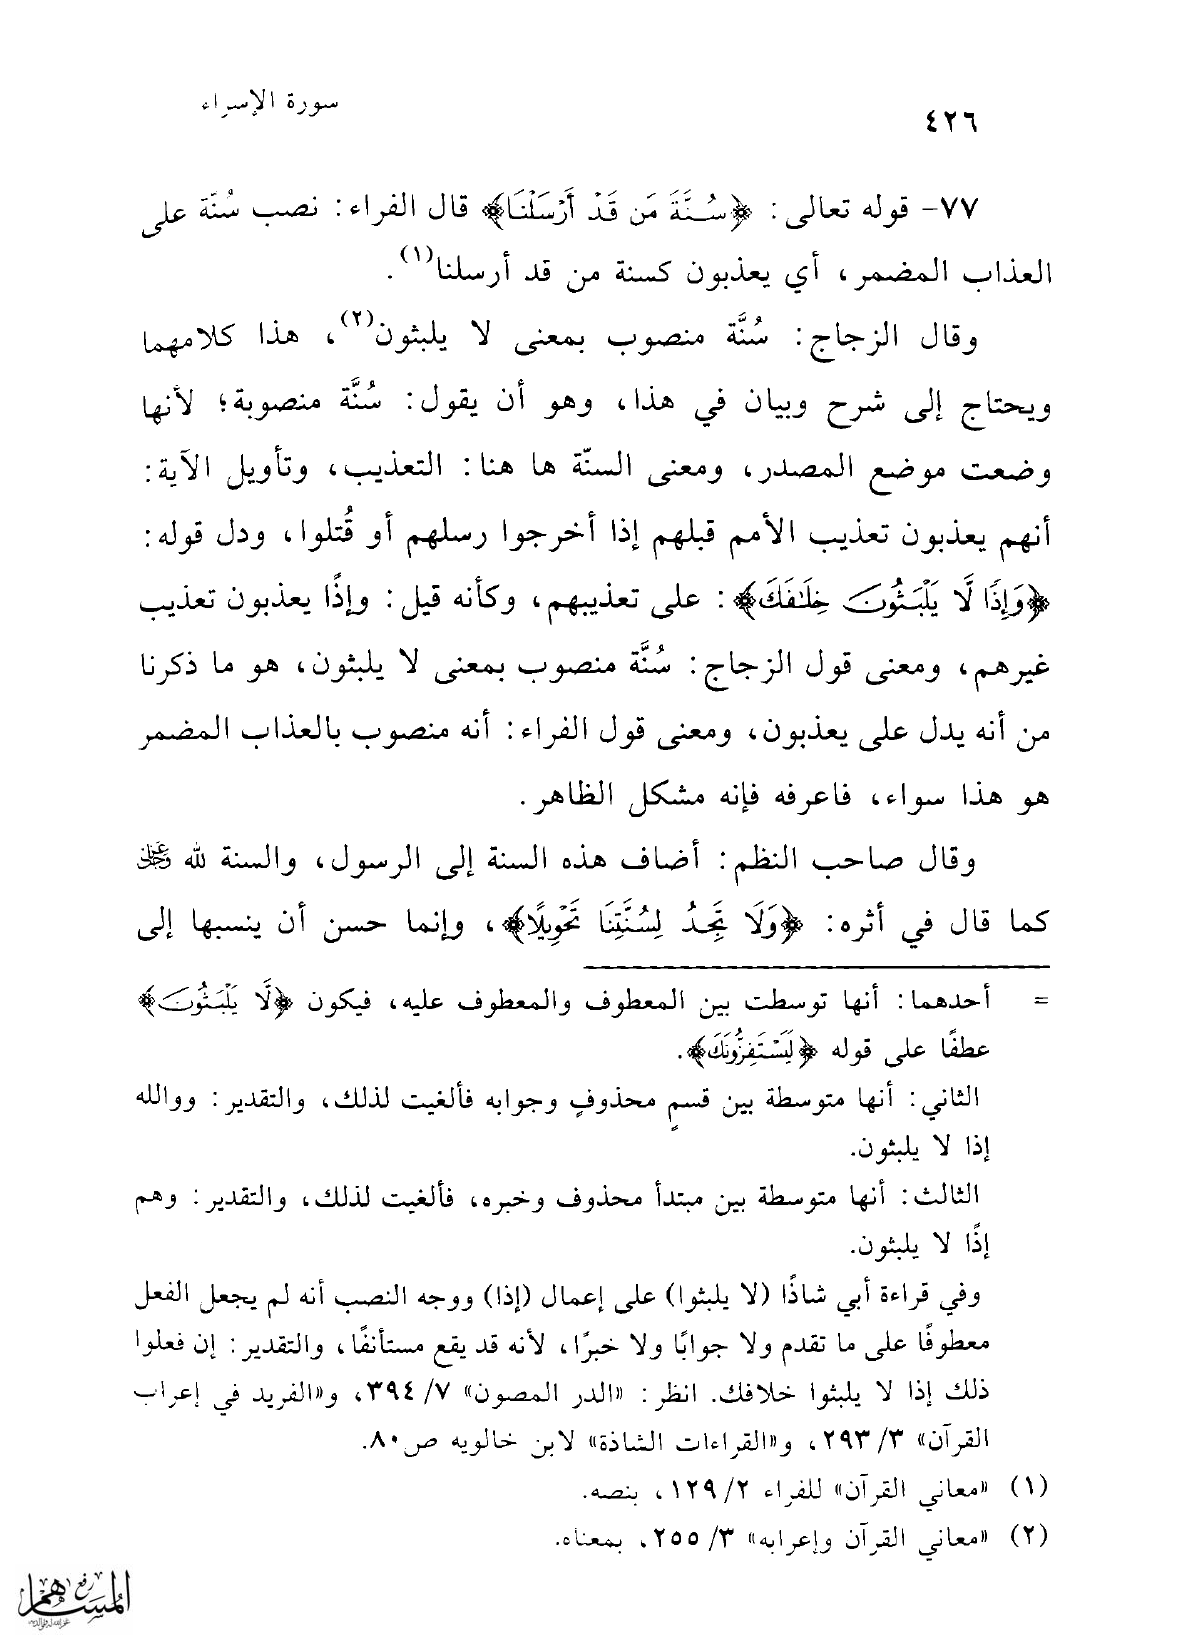 سورة الإسراء
٤٢٦
٧٧- قوله تعالى: ﴿سُنَّةَ مَن قَدْ أَرْسَلْنَا﴾ قال الفراء: نصب سُنّة على
العذاب المضمر، أي يعذبون كسنة من قد أرسلنا(١).
وقال الزجاج: سُنَّة منصوب بمعنى لا يلبثون(٢)، هذا كلامهما
ويحتاج إلى شرح وبيان في هذا، وهو أن يقول: سُنَّة منصوبة؛ لأنها
وضعت موضع المصدر، ومعنى السنّة ها هنا: التعذيب، وتأويل الآية:
أنهم يعذبون تعذيب الأمم قبلهم إذا أخرجوا رسلهم أو قُتلوا، ودل قوله:
﴿وَإِذًا لَّا يَلْبَثُونَ خِلَٰفَكَ﴾: على تعذيبهم، وكأنه قيل: وإذًا يعذبون تعذيب
غيرهم، ومعنى قول الزجاج: سُنَّة منصوب بمعنى لا يلبثون، هو ما ذكرنا
من أنه يدل على يعذبون، ومعنى قول الفراء: أنه منصوب بالعذاب المضمر
هو هذا سواء، فاعرفه فإنه مشكل الظاهر.
وقال صاحب النظم: أضاف هذه السنة إلى الرسول، والسنة لله عز وجل
كما قال في أثره: ﴿وَلَا تَجِدُ لِسُنَّتِنَا تَحْوِيلًا﴾، وإنما حسن أن ينسبها إلى
= أحدهما: أنها توسطت بين المعطوف والمعطوف عليه، فيكون ﴿لَّا يَلْبَثُونَ﴾
عطفًا على قوله ﴿لَيَسْتَفِزُّونَكَ﴾.
الثاني: أنها متوسطة بين قسمٍ محذوفٍ وجوابه فألغيت لذلك، والتقدير: ووالله
إذا لا يلبثون.
الثالث: أنها متوسطة بين مبتدأ محذوف وخبره، فألغيت لذلك، والتقدير: وهم
إذًا لا يلبثون.
وفي قراءة أبي شاذًا (لا يلبثوا) على إعمال (إذا) ووجه النصب أنه لم يجعل الفعل
معطوفًا على ما تقدم ولا جوابًا ولا خبرًا، لأنه قد يقع مستأنفًا، والتقدير: إن فعلوا
ذلك إذا لا يلبثوا خلافك. انظر: «الدر المصون» ٧/ ٣٩٤، و«الفريد في إعراب
القرآن» ٣/ ٢٩٣، و«القراءات الشاذة» لابن خالويه ص٨٠.
(١) «معاني القرآن» للفراء ٢/ ١٢٩، بنصه.
(٢) «معاني القرآن وإعرابه» ٣/ ٢٥٥، بمعناه.
رفع
المساهم